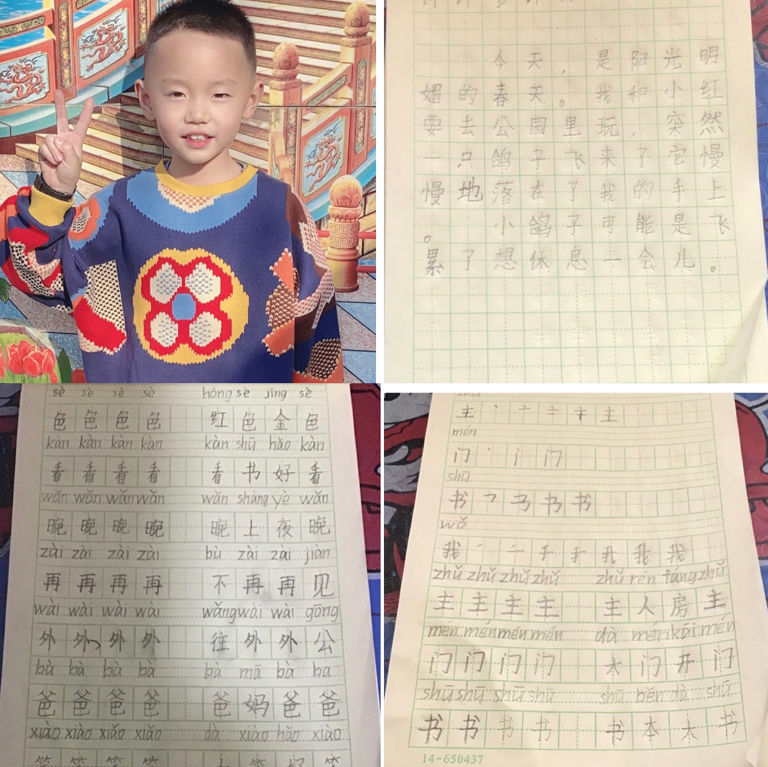 今天，是阳光明
媚的春天。我和小红
要去公园里玩 突然
一只鸽子飞来了它慢
慢地落在了我的手上
。小鸽子可能是飞
累了想休息一会儿。
sè sè sè sè hóng sè jīng sè
色 色 色 色 红 色 金 色
kàn kàn kàn kàn kàn shū hǎo kàn
看 看 看 看 看 书 好 看
wǎn wǎn wǎn wǎn wǎn shàng yè wǎn
晚 晚 晚 晚 晚 上 夜 晚
zài zài zài zài bù zài zài jiàn
再 再 再 再 不 再 再 见
wài wài wài wài wǎng wài wài gōng
外 外 外 外 往 外 外 公
bà bà bà bà bà mā bà ba
爸 爸 爸 爸 爸 妈 爸 爸
xiào xiào xiào xiào dà xiào hǎo xiào
主 丶 亠 主
mén
门 丶 门
shū
书 书 书
wǒ
我 一 二 我 我
zhǔ zhǔ zhǔ zhǔ zhǔ rén fáng zhǔ
主 主 主 主 主 人 房 主
mén mén mén mén dà mén kāi mén
门 门 门 门 大 门 开 门
shū shū shū shū shū běn dà shū
书 书 书 书 书 本 大 书
14-650437